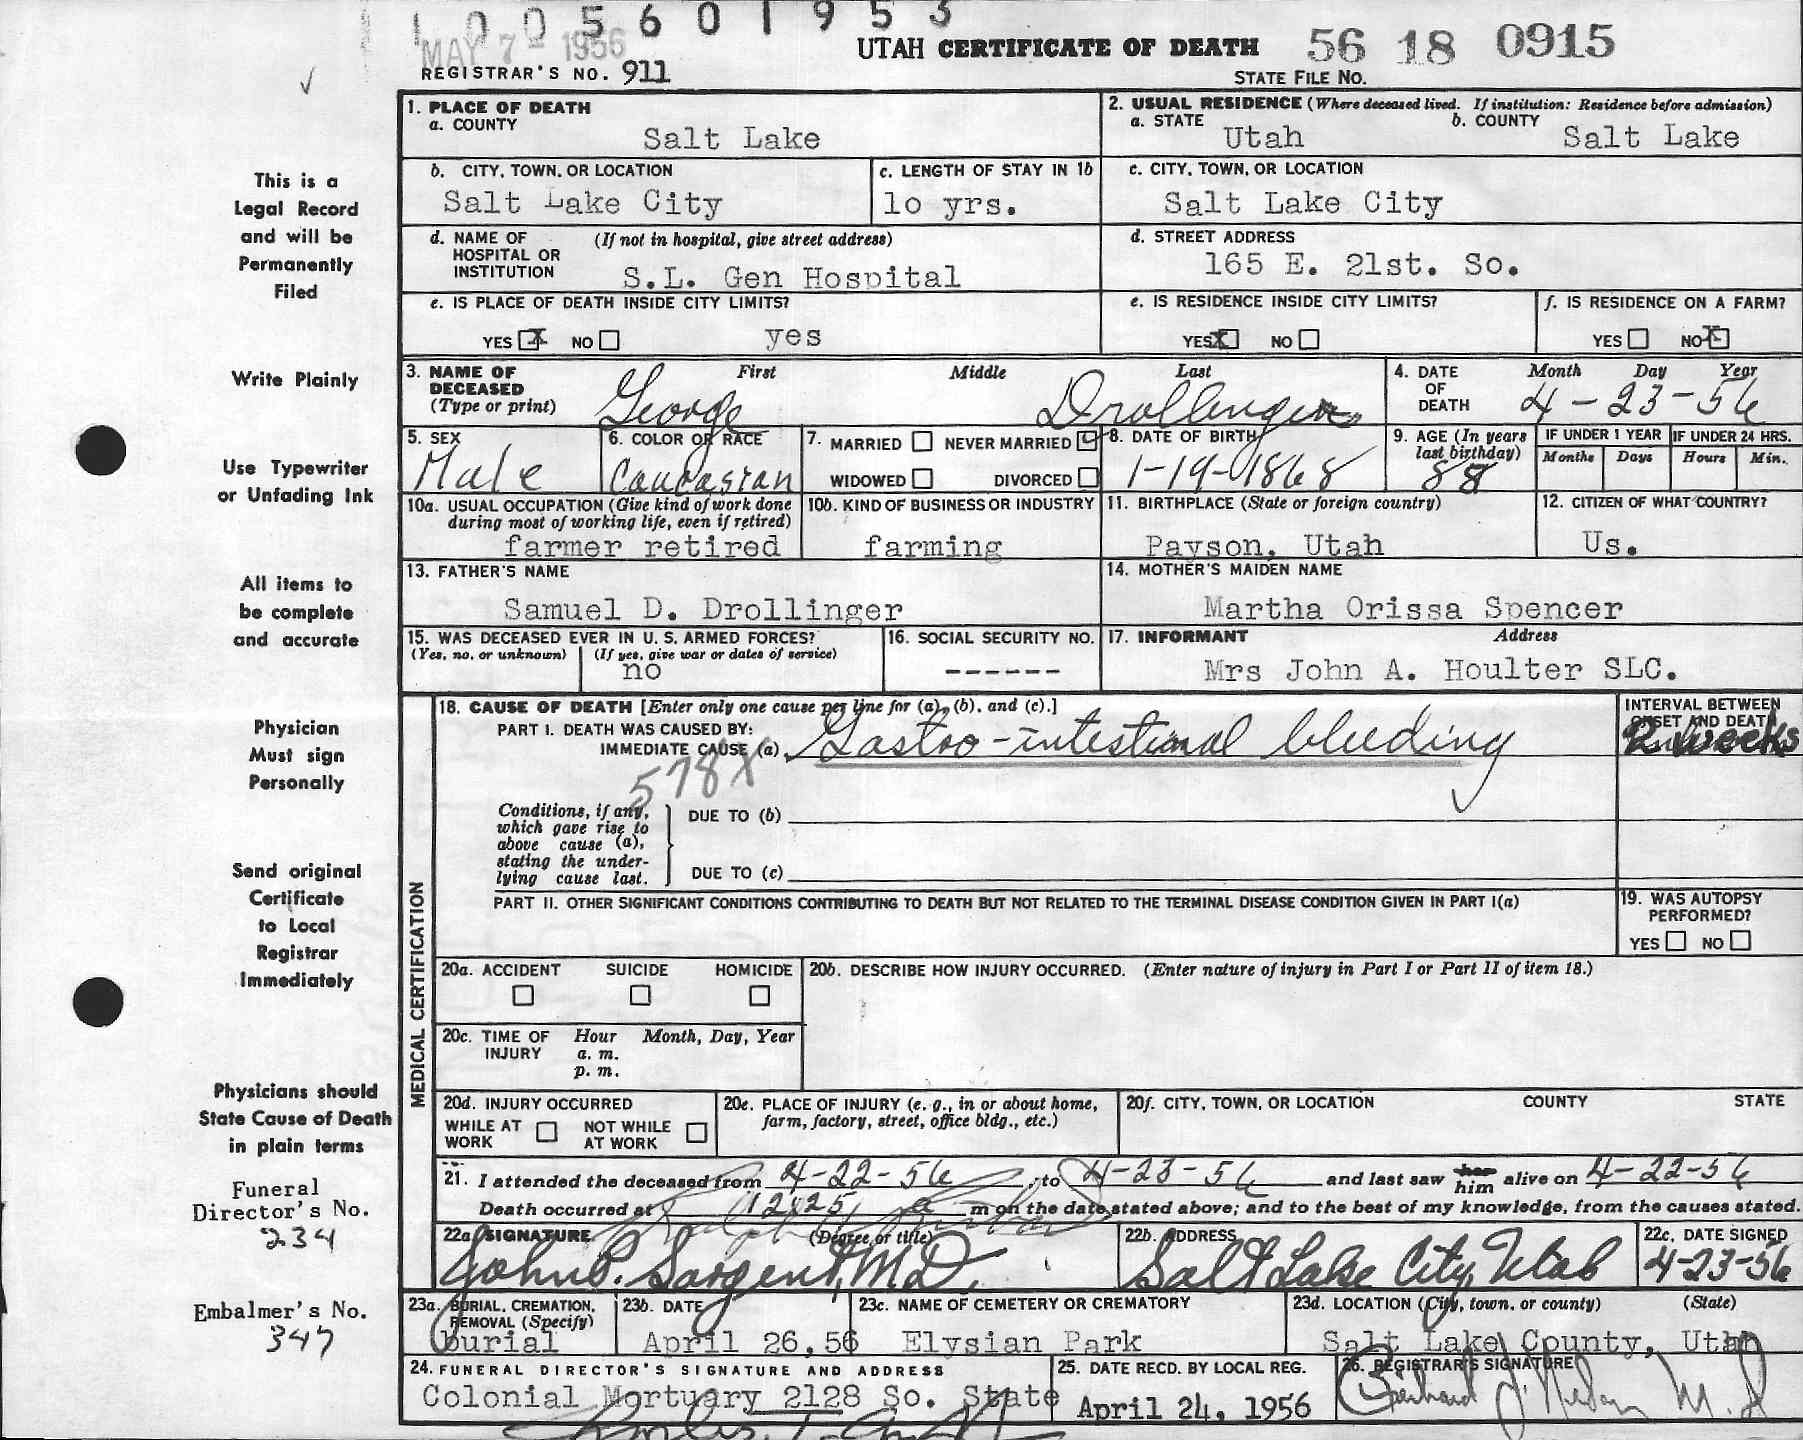 1 0 0 5 6 0 1 9 5 3
MAY 7 - 1956
UTAH CERTIFICATE OF DEATH 56 18 0915
REGISTRAR'S NO. 911
STATE FILE NO.
✓
1. PLACE OF DEATH
a. COUNTY
Salt Lake
2. USUAL RESIDENCE (Where deceased lived. If institution: Residence before admission)
a. STATE Utah b. COUNTY Salt Lake
b. CITY, TOWN, OR LOCATION
Salt Lake City
c. LENGTH OF STAY IN 1b
1o yrs.
c. CITY, TOWN, OR LOCATION
Salt Lake City
d. NAME OF HOSPITAL OR INSTITUTION (If not in hospital, give street address)
S.L. Gen Hospital
d. STREET ADDRESS
165 E. 21st. So.
e. IS PLACE OF DEATH INSIDE CITY LIMITS?
YES X NO yes
e. IS RESIDENCE INSIDE CITY LIMITS?
YES X NO
f. IS RESIDENCE ON A FARM?
YES NO X
3. NAME OF DECEASED (Type or print)
First Middle Last
George Drollinger
4. DATE OF DEATH
Month Day Year
4-23-56
5. SEX
Male
6. COLOR OR RACE
Caucasian
7. MARRIED NEVER MARRIED ✓
WIDOWED DIVORCED
8. DATE OF BIRTH
1-19-1868
9. AGE (In years last birthday)
88
IF UNDER 1 YEAR
Months Days
IF UNDER 24 HRS.
Hours Min.
10a. USUAL OCCUPATION (Give kind of work done during most of working life, even if retired)
farmer retired
10b. KIND OF BUSINESS OR INDUSTRY
farming
11. BIRTHPLACE (State or foreign country)
Payson, Utah
12. CITIZEN OF WHAT COUNTRY?
Us.
13. FATHER'S NAME
Samuel D. Drollinger
14. MOTHER'S MAIDEN NAME
Martha Orissa Spencer
15. WAS DECEASED EVER IN U. S. ARMED FORCES?
(Yes, no, or unknown) (If yes, give war or dates of service)
no
16. SOCIAL SECURITY NO.
------
17. INFORMANT Address
Mrs John A. Houlter SLC.
MEDICAL CERTIFICATION
18. CAUSE OF DEATH [Enter only one cause per line for (a), (b), and (c).]
PART I. DEATH WAS CAUSED BY:
IMMEDIATE CAUSE (a) Gastro-intestinal bleeding
578X
INTERVAL BETWEEN ONSET AND DEATH
2 weeks
Conditions, if any, which gave rise to above cause (a), stating the underlying cause last.
DUE TO (b)
DUE TO (c)
PART II. OTHER SIGNIFICANT CONDITIONS CONTRIBUTING TO DEATH BUT NOT RELATED TO THE TERMINAL DISEASE CONDITION GIVEN IN PART I(a)
19. WAS AUTOPSY PERFORMED?
YES NO
20a. ACCIDENT SUICIDE HOMICIDE
20b. DESCRIBE HOW INJURY OCCURRED. (Enter nature of injury in Part I or Part II of item 18.)
20c. TIME OF INJURY Hour a. m. p. m. Month, Day, Year
20d. INJURY OCCURRED
WHILE AT WORK NOT WHILE AT WORK
20e. PLACE OF INJURY (e. g., in or about home, farm, factory, street, office bldg., etc.)
20f. CITY, TOWN, OR LOCATION COUNTY STATE
21. I attended the deceased from 4-22-56, to 4-23-56 and last saw her him alive on 4-22-56
Death occurred at 12:25 a m on the date stated above; and to the best of my knowledge, from the causes stated.
22a. SIGNATURE (Degree or title)
John P. Sargent, M.D.
22b. ADDRESS
Salt Lake City, Utah
22c. DATE SIGNED
4-23-56
23a. BURIAL, CREMATION, REMOVAL (Specify)
burial
23b. DATE
April 26,56
23c. NAME OF CEMETERY OR CREMATORY
Elysian Park
23d. LOCATION (City, town, or county) (State)
Salt Lake County, Utah
24. FUNERAL DIRECTOR'S SIGNATURE AND ADDRESS
Colonial Mortuary 2128 So. State
25. DATE RECD. BY LOCAL REG.
April 24, 1956
26. REGISTRAR'S SIGNATURE
M.D.
This is a
Legal Record
and will be
Permanently
Filed
Write Plainly
Use Typewriter
or Unfading Ink
All items to
be complete
and accurate
Physician
Must sign
Personally
Send original
Certificate
to Local
Registrar
Immediately
Physicians should
State Cause of Death
in plain terms
Funeral
Director's No.
234
Embalmer's No.
347